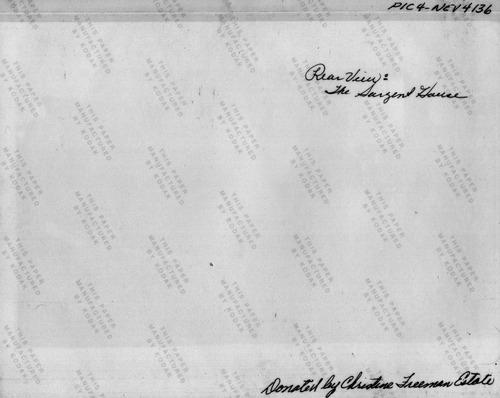 PIC4-NEV4136
Rear View:
The Sargent House
THIS PAPER
MANUFACTURED
BY KODAK
Donated by Christine Freeman Estate